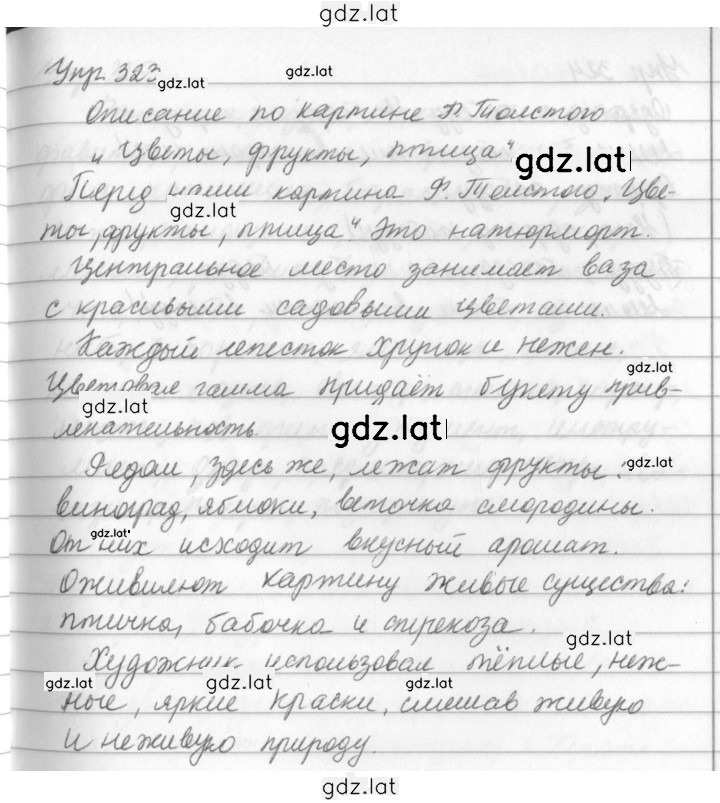 gdz.lat
Упр. 323
gdz.lat
gdz.lat
Описание по картине Ф. Толстого
„Цветы, фрукты, птица“
gdz.lat
Перед нами картина Ф. Толстого „Цве-
gdz.lat
ты, фрукты, птица“ Это натюрморт.
Центральное место занимает ваза
с красивыми садовыми цветами.
Каждый лепесток хрупок и нежен.
gdz.lat
Цветовая гамма придаёт букету прив-
gdz.lat
лекательность.
gdz.lat
Рядом, здесь же, лежат фрукты:
gdz.lat
виноград, яблоки, веточка смородины.
gdz.lat
От них исходит вкусный аромат.
Оживляют картину живые существа:
птичка, бабочка и стрекоза.
gdz.lat
Художник использовал тёплые, неж-
gdz.lat
gdz.lat
gdz.lat
ные, яркие краски, смешав живую
и неживую природу.
gdz.lat